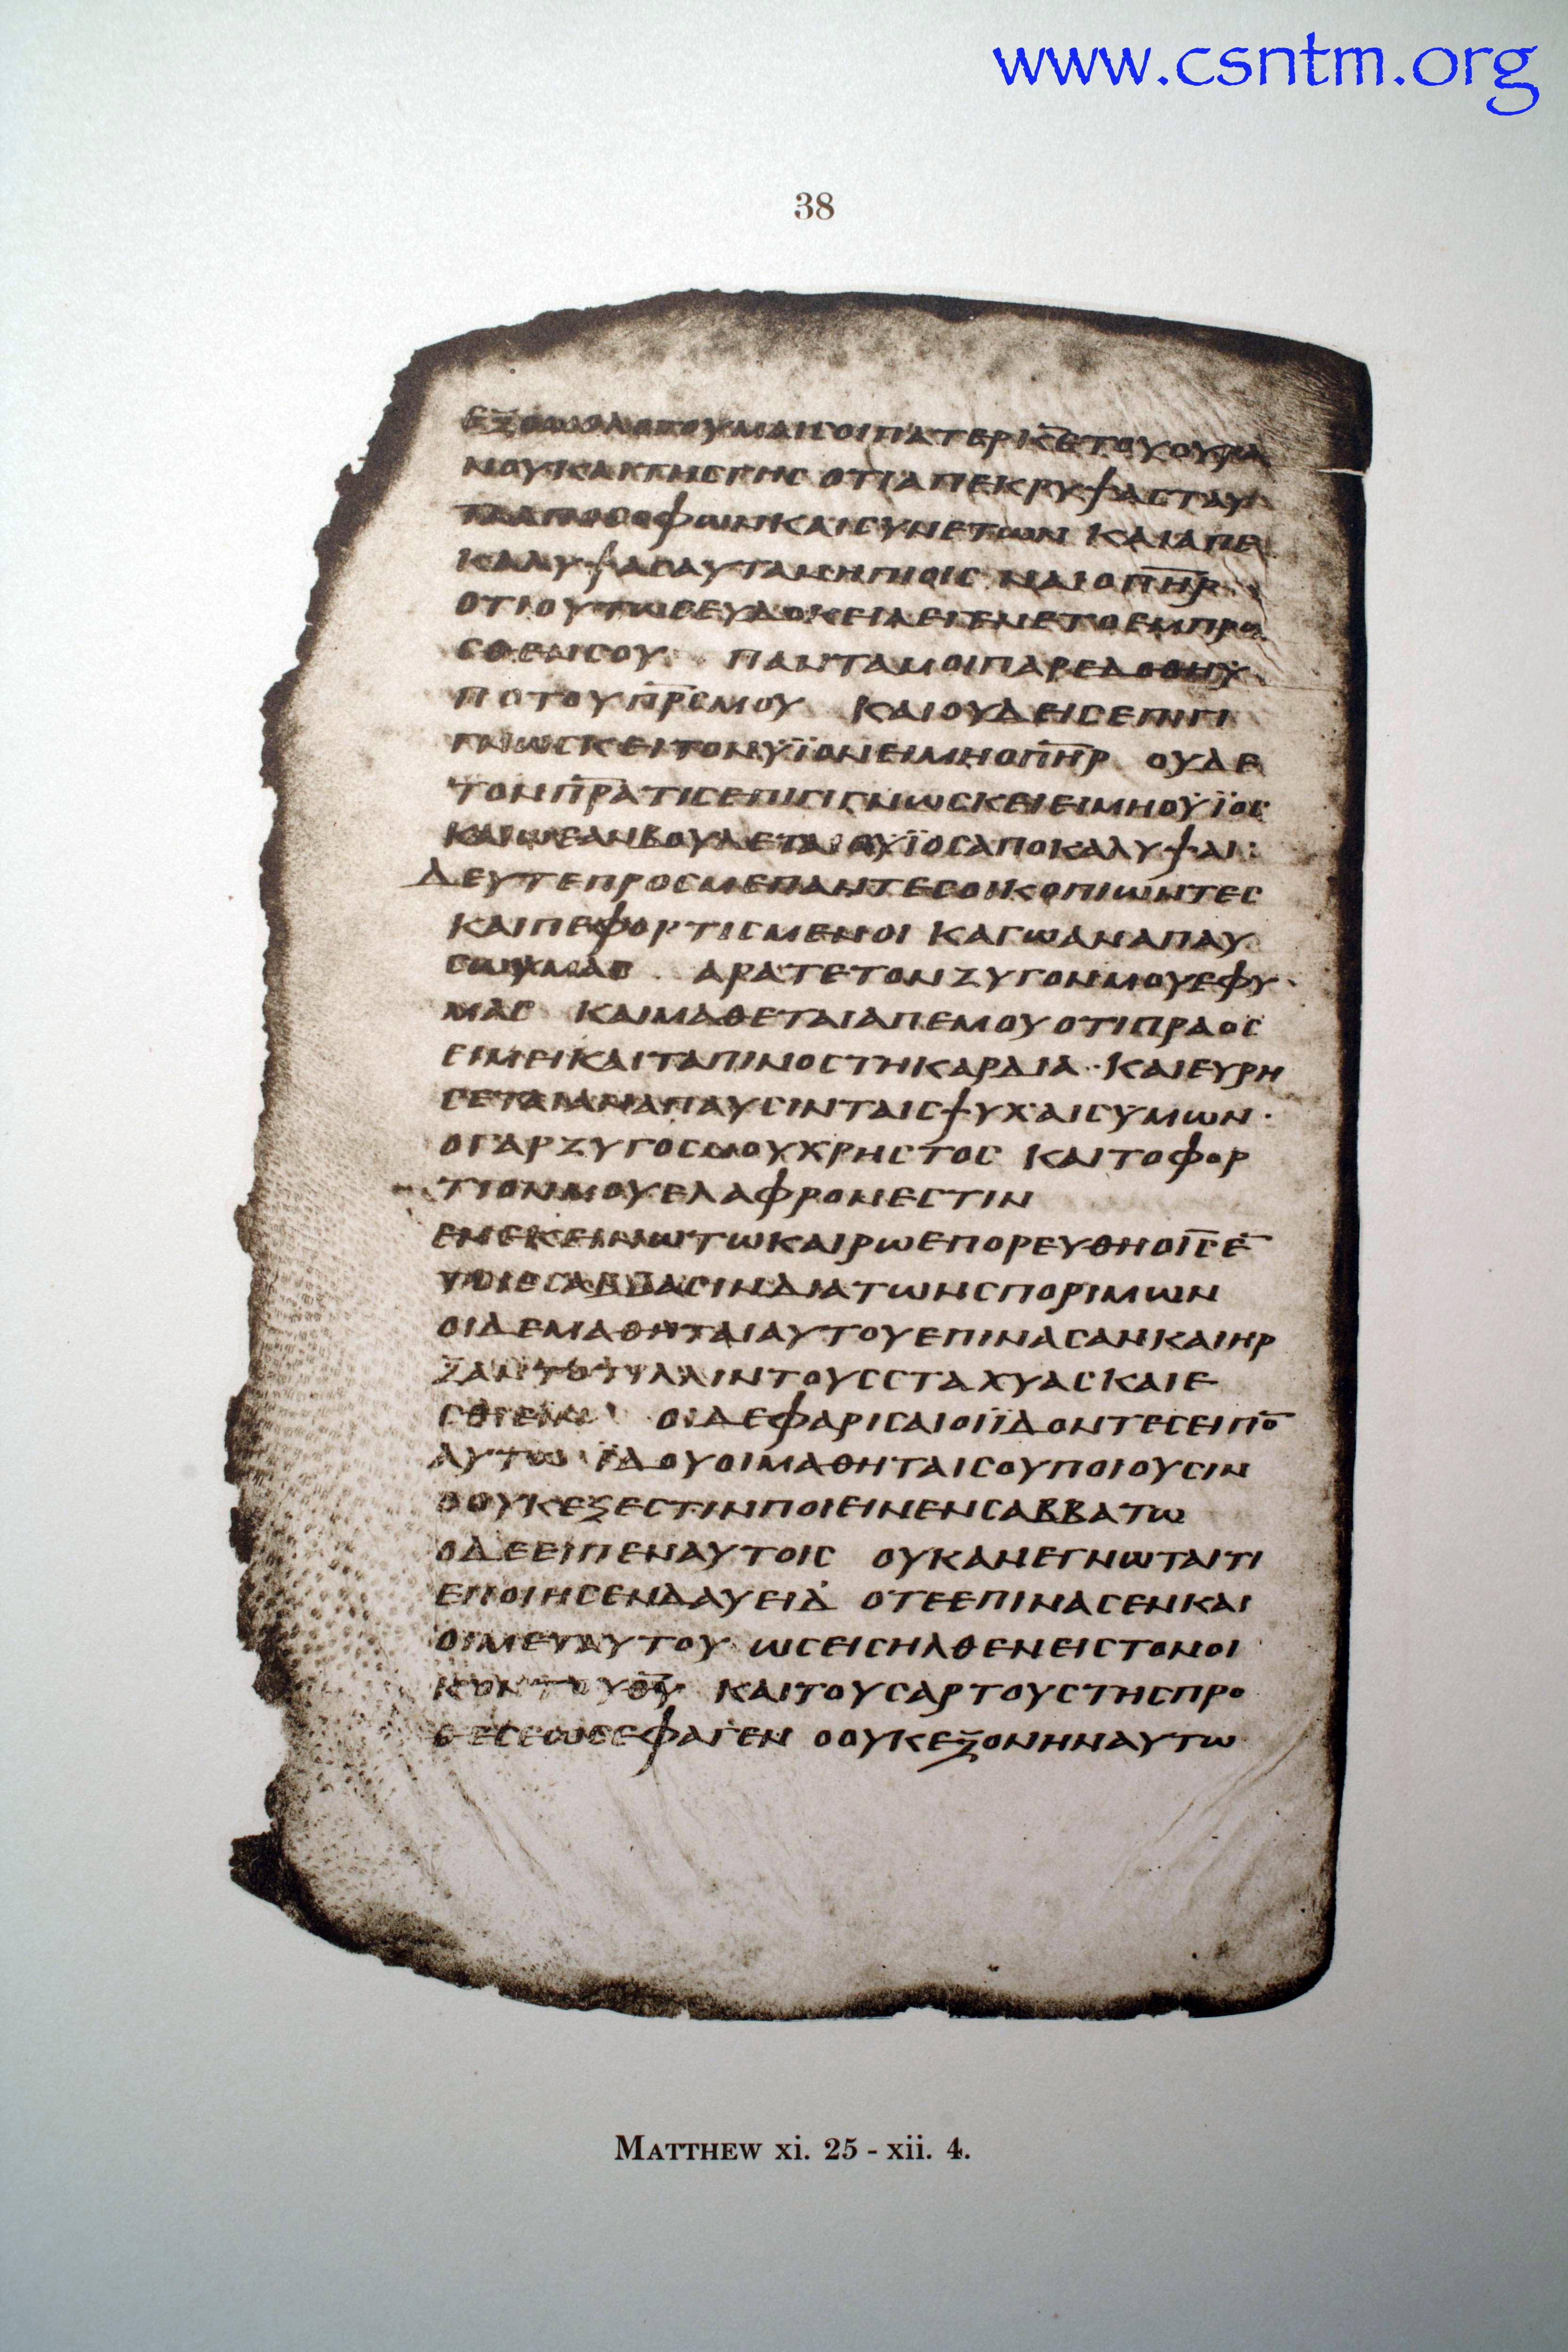 www.csntm.org
38
ΕΞΟΜΟΛΟΓΟΥΜΑΙ ϹΟΙ ΠΑΤΕΡ Κ̅Ε̅ ΤΟΥ ΟΥΡΑ
ΝΟΥ ΚΑΙ ΤΗϹ ΓΗϹ ΟΤΙ ΑΠΕΚΡΥΨΑϹ ΤΑΥ
ΤΑ ΑΠΟ ϹΟΦΩΝ ΚΑΙ ϹΥΝΕΤΩΝ ΚΑΙ ΑΠΕ
ΚΑΛΥΨΑϹ ΑΥΤΑ ΝΗΠΙΟΙϹ ΝΑΙ Ο Π̅Η̅Ρ̅
ΟΤΙ ΟΥΤΩϹ ΕΥΔΟΚΕΙΑ ΕΓΕΝΕΤΟ ΕΜΠΡΟ
ϹΘΕΝ ϹΟΥ ΠΑΝΤΑ ΜΟΙ ΠΑΡΕΔΟΘΗ Ϋ
ΠΟ ΤΟΥ Π̅Ρ̅Ϲ̅ ΜΟΥ ΚΑΙ ΟΥΔΕΙϹ ΕΠΙΓΙ
ΓΝΩϹΚΕΙ ΤΟΝ ΥΪΟΝ ΕΙ ΜΗ Ο Π̅Η̅Ρ̅ ΟΥΔΕ
ΤΟΝ Π̅Ρ̅Α̅ ΤΙϹ ΕΠΙΓΙΓΝΩϹΚΕΙ ΕΙ ΜΗ Ο ΫΪΟϹ
ΚΑΙ Ω ΕΑΝ ΒΟΥΛΕΤΑΙ Ο ΥΪΟϹ ΑΠΟΚΑΛΥΨΑΙ:
ΔΕΥΤΕ ΠΡΟϹ ΜΕ ΠΑΝΤΕϹ ΟΙ ΚΟΠΙΩΝΤΕϹ
ΚΑΙ ΠΕΦΟΡΤΙϹΜΕΝΟΙ ΚΑΓΩ ΑΝΑΠΑΥ
ϹΩ ΥΜΑϹ · ΑΡΑΤΕ ΤΟΝ ΖΥΓΟΝ ΜΟΥ ΕΦ Υ
ΜΑϹ ΚΑΙ ΜΑΘΕΤΑΙ ΑΠ ΕΜΟΥ ΟΤΙ ΠΡΑΟϹ
ΕΙΜΕΙ ΚΑΙ ΤΑΠΙΝΟϹ ΤΗ ΚΑΡΔΙΑ · ΚΑΙ ΕΥΡΗ
ϹΕΤΑΙ ΑΝΑΠΑΥϹΙΝ ΤΑΙϹ ΨΥΧΑΙϹ ΥΜΩΝ ·
Ο ΓΑΡ ΖΥΓΟϹ ΜΟΥ ΧΡΗϹΤΟϹ ΚΑΙ ΤΟ ΦΟΡ
ΤΙΟΝ ΜΟΥ ΕΛΑΦΡΟΝ ΕϹΤΙΝ
ΕΝ ΕΚΕΙΝΩ ΤΩ ΚΑΙΡΩ ΕΠΟΡΕΥΘΗ Ο Ι̅Ϲ̅ Ε̅
ΤΟΙϹ ϹΑΒΒΑϹΙΝ ΔΙΑ ΤΩΝ ϹΠΟΡΙΜΩΝ
ΟΙ ΔΕ ΜΑΘΗΤΑΙ ΑΥΤΟΥ ΕΠΙΝΑϹΑΝ ΚΑΙ ΗΡ
ΞΑΝΤΟ ΤΙΛΛΙΝ ΤΟΥϹ ϹΤΑΧΥΑϹ ΚΑΙ Ε
ϹΘΙΕΙΝ ΟΙ ΔΕ ΦΑΡΙϹΑΙΟΙ ΪΔΟΝΤΕϹ ΕΙΠΟ̅
ΑΥΤΩ ΪΔΟΥ ΟΙ ΜΑΘΗΤΑΙ ϹΟΥ ΠΟΙΟΥϹΙΝ
Ο ΟΥΚ ΕΞΕϹΤΙΝ ΠΟΙΕΙΝ ΕΝ ϹΑΒΒΑΤΩ
Ο ΔΕ ΕΙΠΕΝ ΑΥΤΟΙϹ ΟΥΚ ΑΝΕΓΝΩΤΑΙ ΤΙ
ΕΠΟΙΗϹΕΝ ΔΑΥΕΙΔ ΟΤΕ ΕΠΙΝΑϹΕΝ ΚΑΙ
ΟΙ ΜΕΤ ΑΥΤΟΥ ΩϹ ΕΙϹΗΛΘΕΝ ΕΙϹ ΤΟΝ ΟΙ
ΚΟΝ ΤΟΥ Θ̅Υ̅ ΚΑΙ ΤΟΥϹ ΑΡΤΟΥϹ ΤΗϹ ΠΡΟ
ΘΕϹΕΩϹ ΕΦΑΓΕΝ Ο ΟΥΚ ΕΞΟΝ ΗΝ ΑΥΤΩ
MATTHEW xi. 25 - xii. 4.